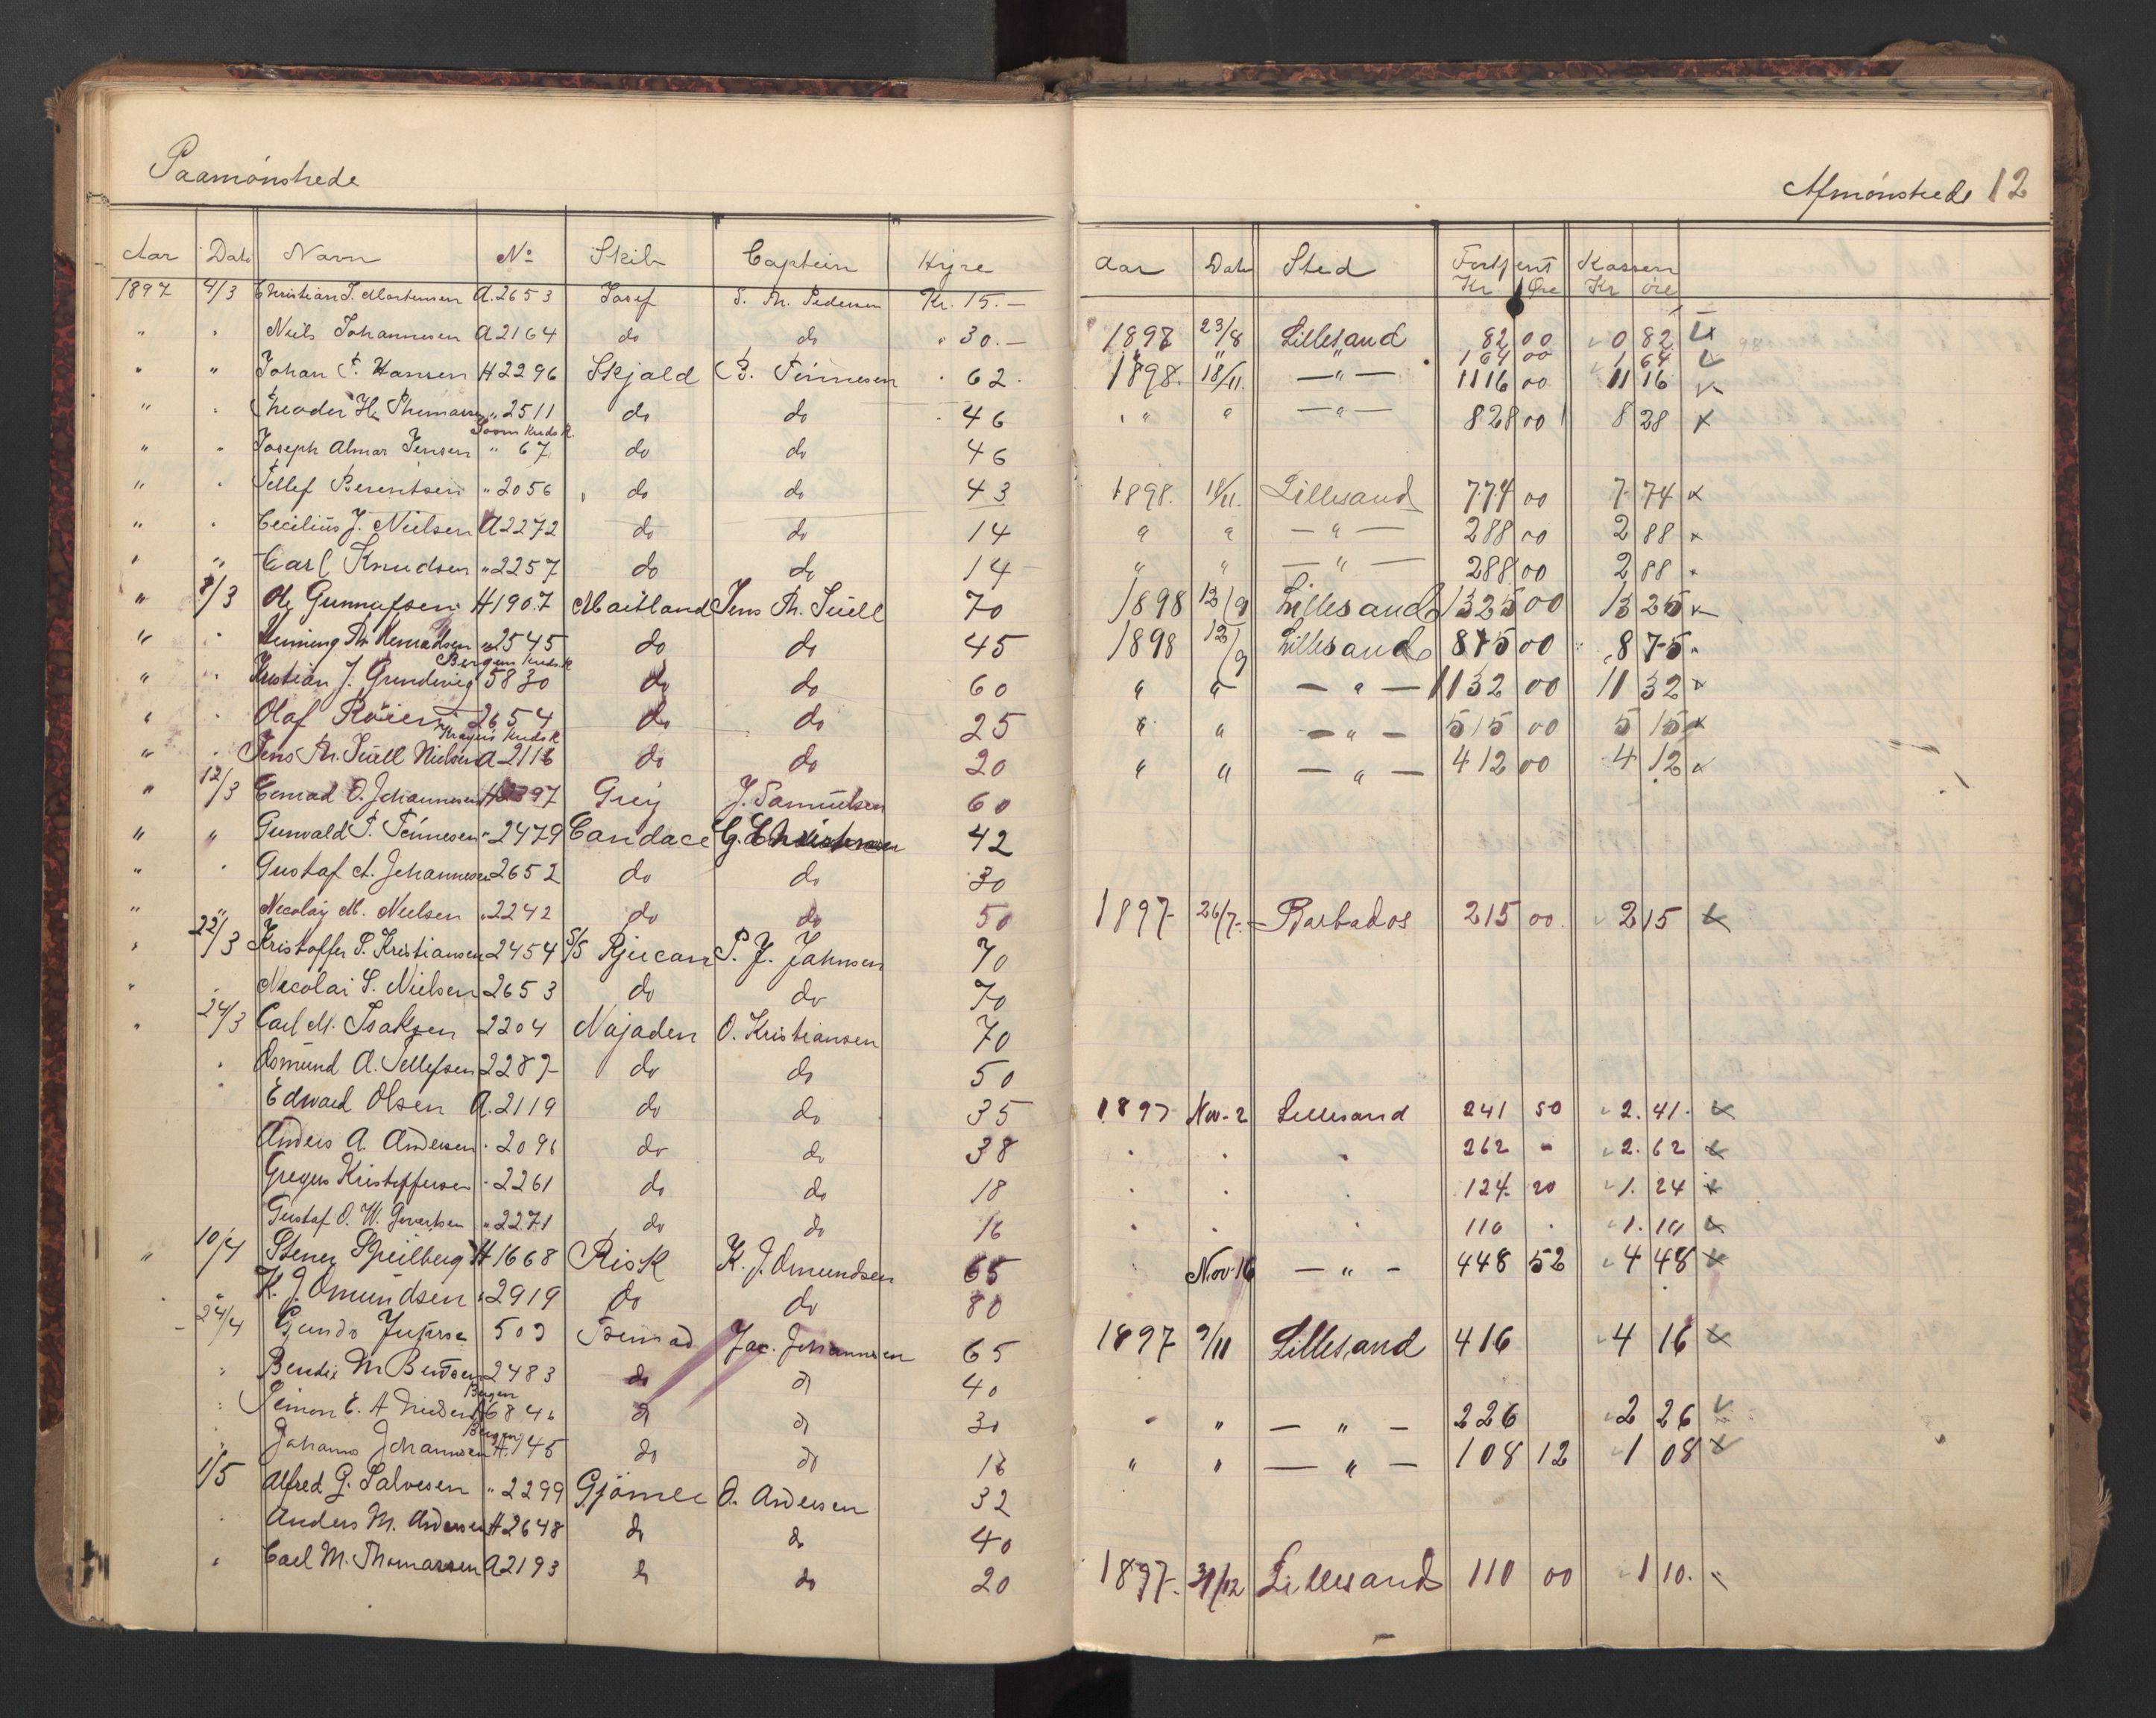 Paamønstrede
Aar Dato Navn No Skib Captein Hyre
1897 4/3 Christian S. Mortensen A. 2653 Josef S. Th. Pedersen Kr. 15.—
" " Niels Johannesen A 2164 do do " 30.—
" " Johan C. Hansen H 2296 Skjald B. Tønnesen " 62.
" " Theodor H. Thomassen " 2511 do do 46
" " Joseph Almar Jensen " 67 do do 46
" " Tellef Berentsen " 2056 do do 43
" " Cecilius J. Nielsen A 2272 do do 14
" " Carl Knudsen " 2257 do do 14
" 8/3 Ole Gunnufsen H 1907 Maitland Jens Th. Juell 70
" " Henning Th. " 2545 do do 45
Bergens Kreds R
" " Kristian J. Grundevig 5830 do do 60
" " Olaf Røier 2654 do do 25
" " Jens Th. Juell Nielsen A 2116 do do 20
" 12/3 Conrad O. Johannesen H 2397 Grey J. Samuelsen 60
" " Gunvald T. Tønnesen " 2479 Candace G. Christensen 42
" " Gustaf A. Johannesen 2652 do do 30
" " Nicolay M. Nielsen " 2242 do do 50
" 22/3 Kristoffer S. Kristiansen 2454 S/S Rjucan P. J. Jahnsen 70
" " Nicolai S. Nielsen 2653 do do 70
" 24/3 Carl M. Isaksen 2204 Najaden O. Kristiansen 70
" Osmund A. Tellefsen 2287 do do 50
" Edward Olsen A. 2119 do do 35
Anders A. Andersen " 2096 do do 38
Gregers Kristoffersen " 2261 do do 18
Gustaf O. W. " 2271 do do 16
" 10/4 Stener Speilberg H 1668 Risk K. J. Omundsen 65
" " K. J. Omundsen " 2919 do do 80
24/4 503 Jac. Johannesen 65
" Bendix M 2483 do do 40
Bergen
" Simon E. A 6846 do do 30
Bergen
" Johannes Johannesen A. 145 do do 16
1/5 Alfred G. Salvesen " 2299 Gjømle O. Andersen 32
" Anders M. Andersen H 2648 do do 40
" Carl M. Thomassen A 2193 do do 20
Afmønstrede 12
Aar Dato Sted Fortjent Kassen
Kr Øre Kr øre
1898 23/8 Lillesand 82 00 0 82
" " 164 00 1 64
1898. 18/11. — " — 1116 00 11 16
" " — " — 828 00 8 28
1898. 18/11. Lillesand 774 00 7 74
" " — " — 288 00 2 88
" " — " — 288 00 2 88
1898 12/9 Lillesand 1325 00 13 25
1898 12/9 Lillesand 875 00 8 75
" " — " — 1132 00 11 32
" " — " — 515 00 5 15
" " — " — 412 00 4 12
1897 26/7 Barbados 215 00 2 15
1897 Nov. 2 Lillesand 241 50 2. 41.
" " " 262 - 2. 62
" " " 124. 20 1. 24
" " " 110 . 1. 10
Nov. 16 — " — 448 52 4 48
1897 9/11 Lillesand 416 4 16
" " — " — 226 2 26
" " — " — 108 12 1 08
1897 31/12 Lillesand 110 00 1 10.